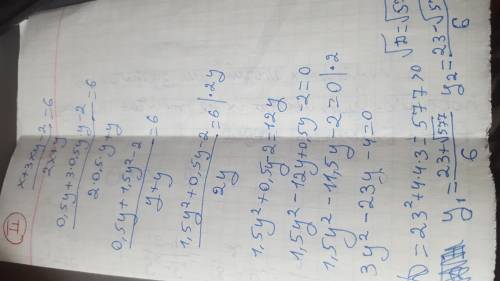 II
x+3xy-2/2x+y=6
0,5y+3·0,5y·y-2/2·0,5·y+y=6
0,5y+1,5y²-2/y+y=6
1,5y²+0,5y-2/2y=6|·2y
1,5y²+0,5y-2=12y
1,5y²-12y+0,5y-2=0
1,5y²-11,5y-2=0|·2
3y²-23y-4=0
D=23²+4·4·3=577>0 √D=√57
y₁=23+√577/6 y₂=23-√5/6